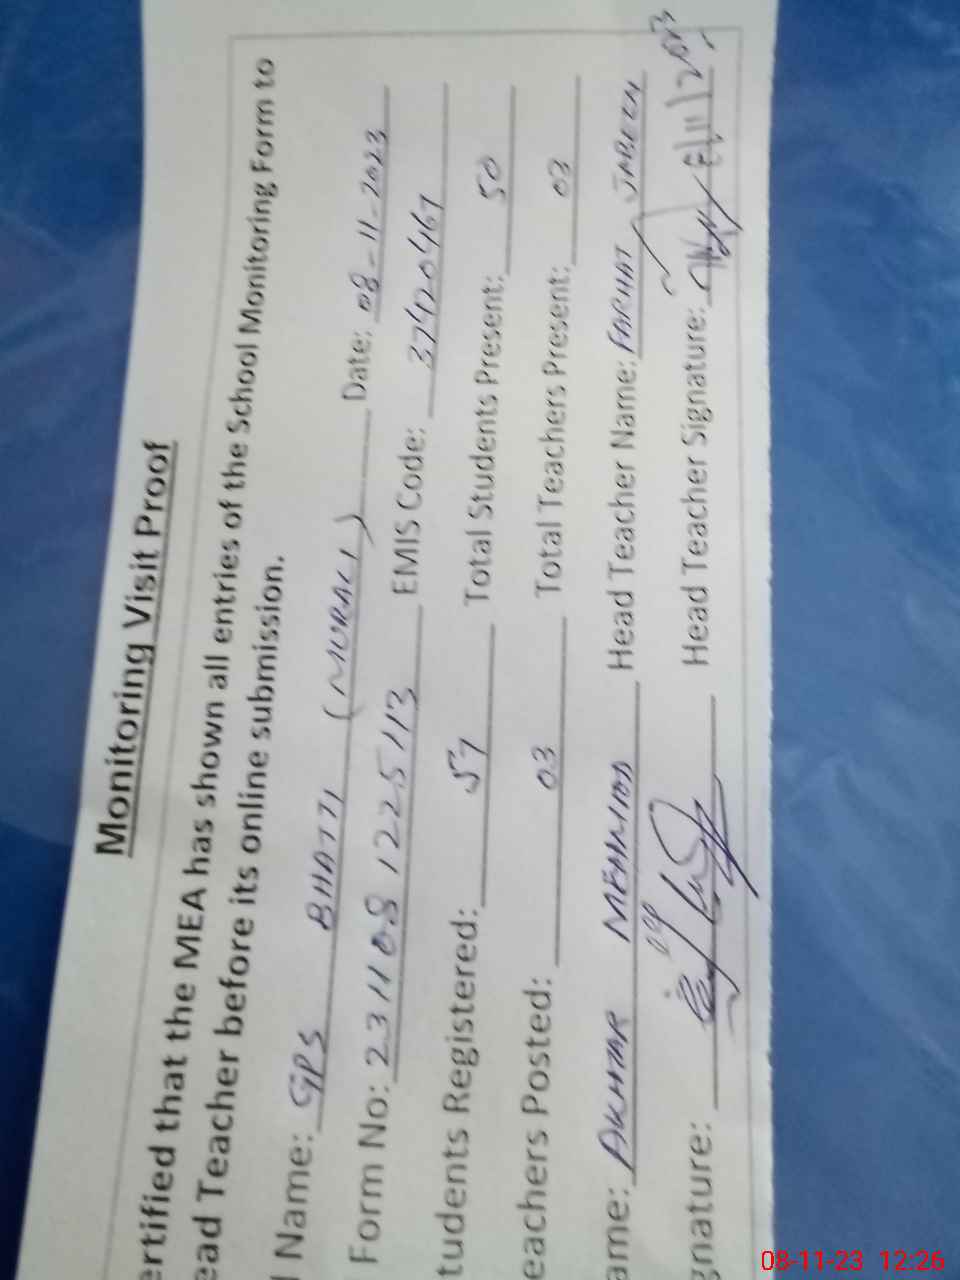 Monitoring Visit Proof
ertified that the MEA has shown all entries of the School Monitoring Form to
ead Teacher before its online submission.
l Name: GPS BHATTI (MURALI) Date: 08-11-2023
Form No: 231108 1225113 EMIS Code: 37420467
tudents Registered: 57 Total Students Present: 50
eachers Posted: 03 Total Teachers Present: 03
ame: AKHTAR MEHMOOD Head Teacher Name: FARHAT JABEEN
gnature: Head Teacher Signature:
08-11-23 12:26